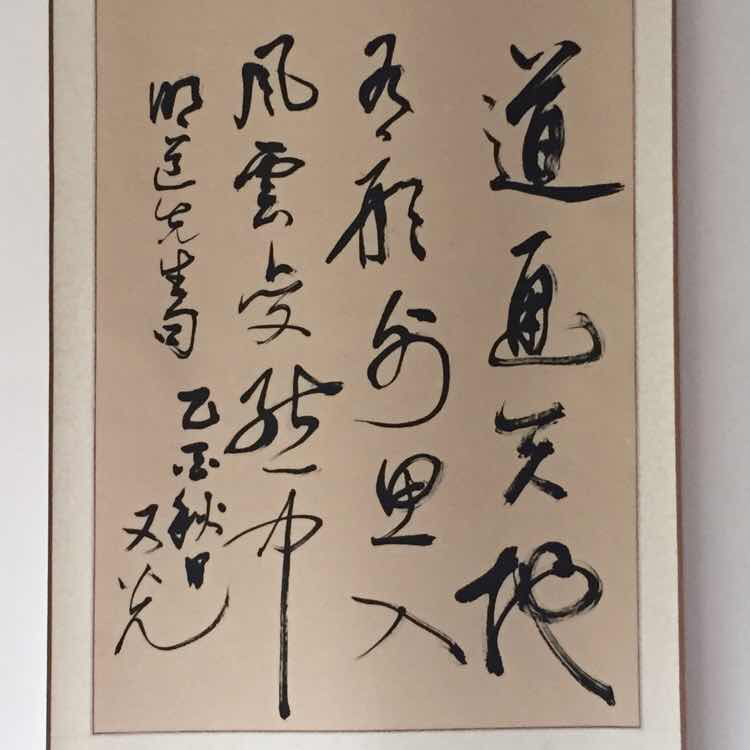 道通天地
有形外思入
風雲變態中
明道先生句
乙酉秋日
又光